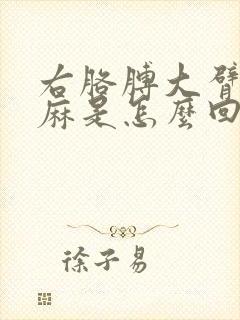 右胳膊大臂
麻是怎麼回
徐子易